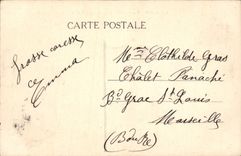 CARTE POSTALE
Grosse caresse
Emma
Mme Clothilde Gras
Chalet Panaché
Bd Grac St Louis
Marseille